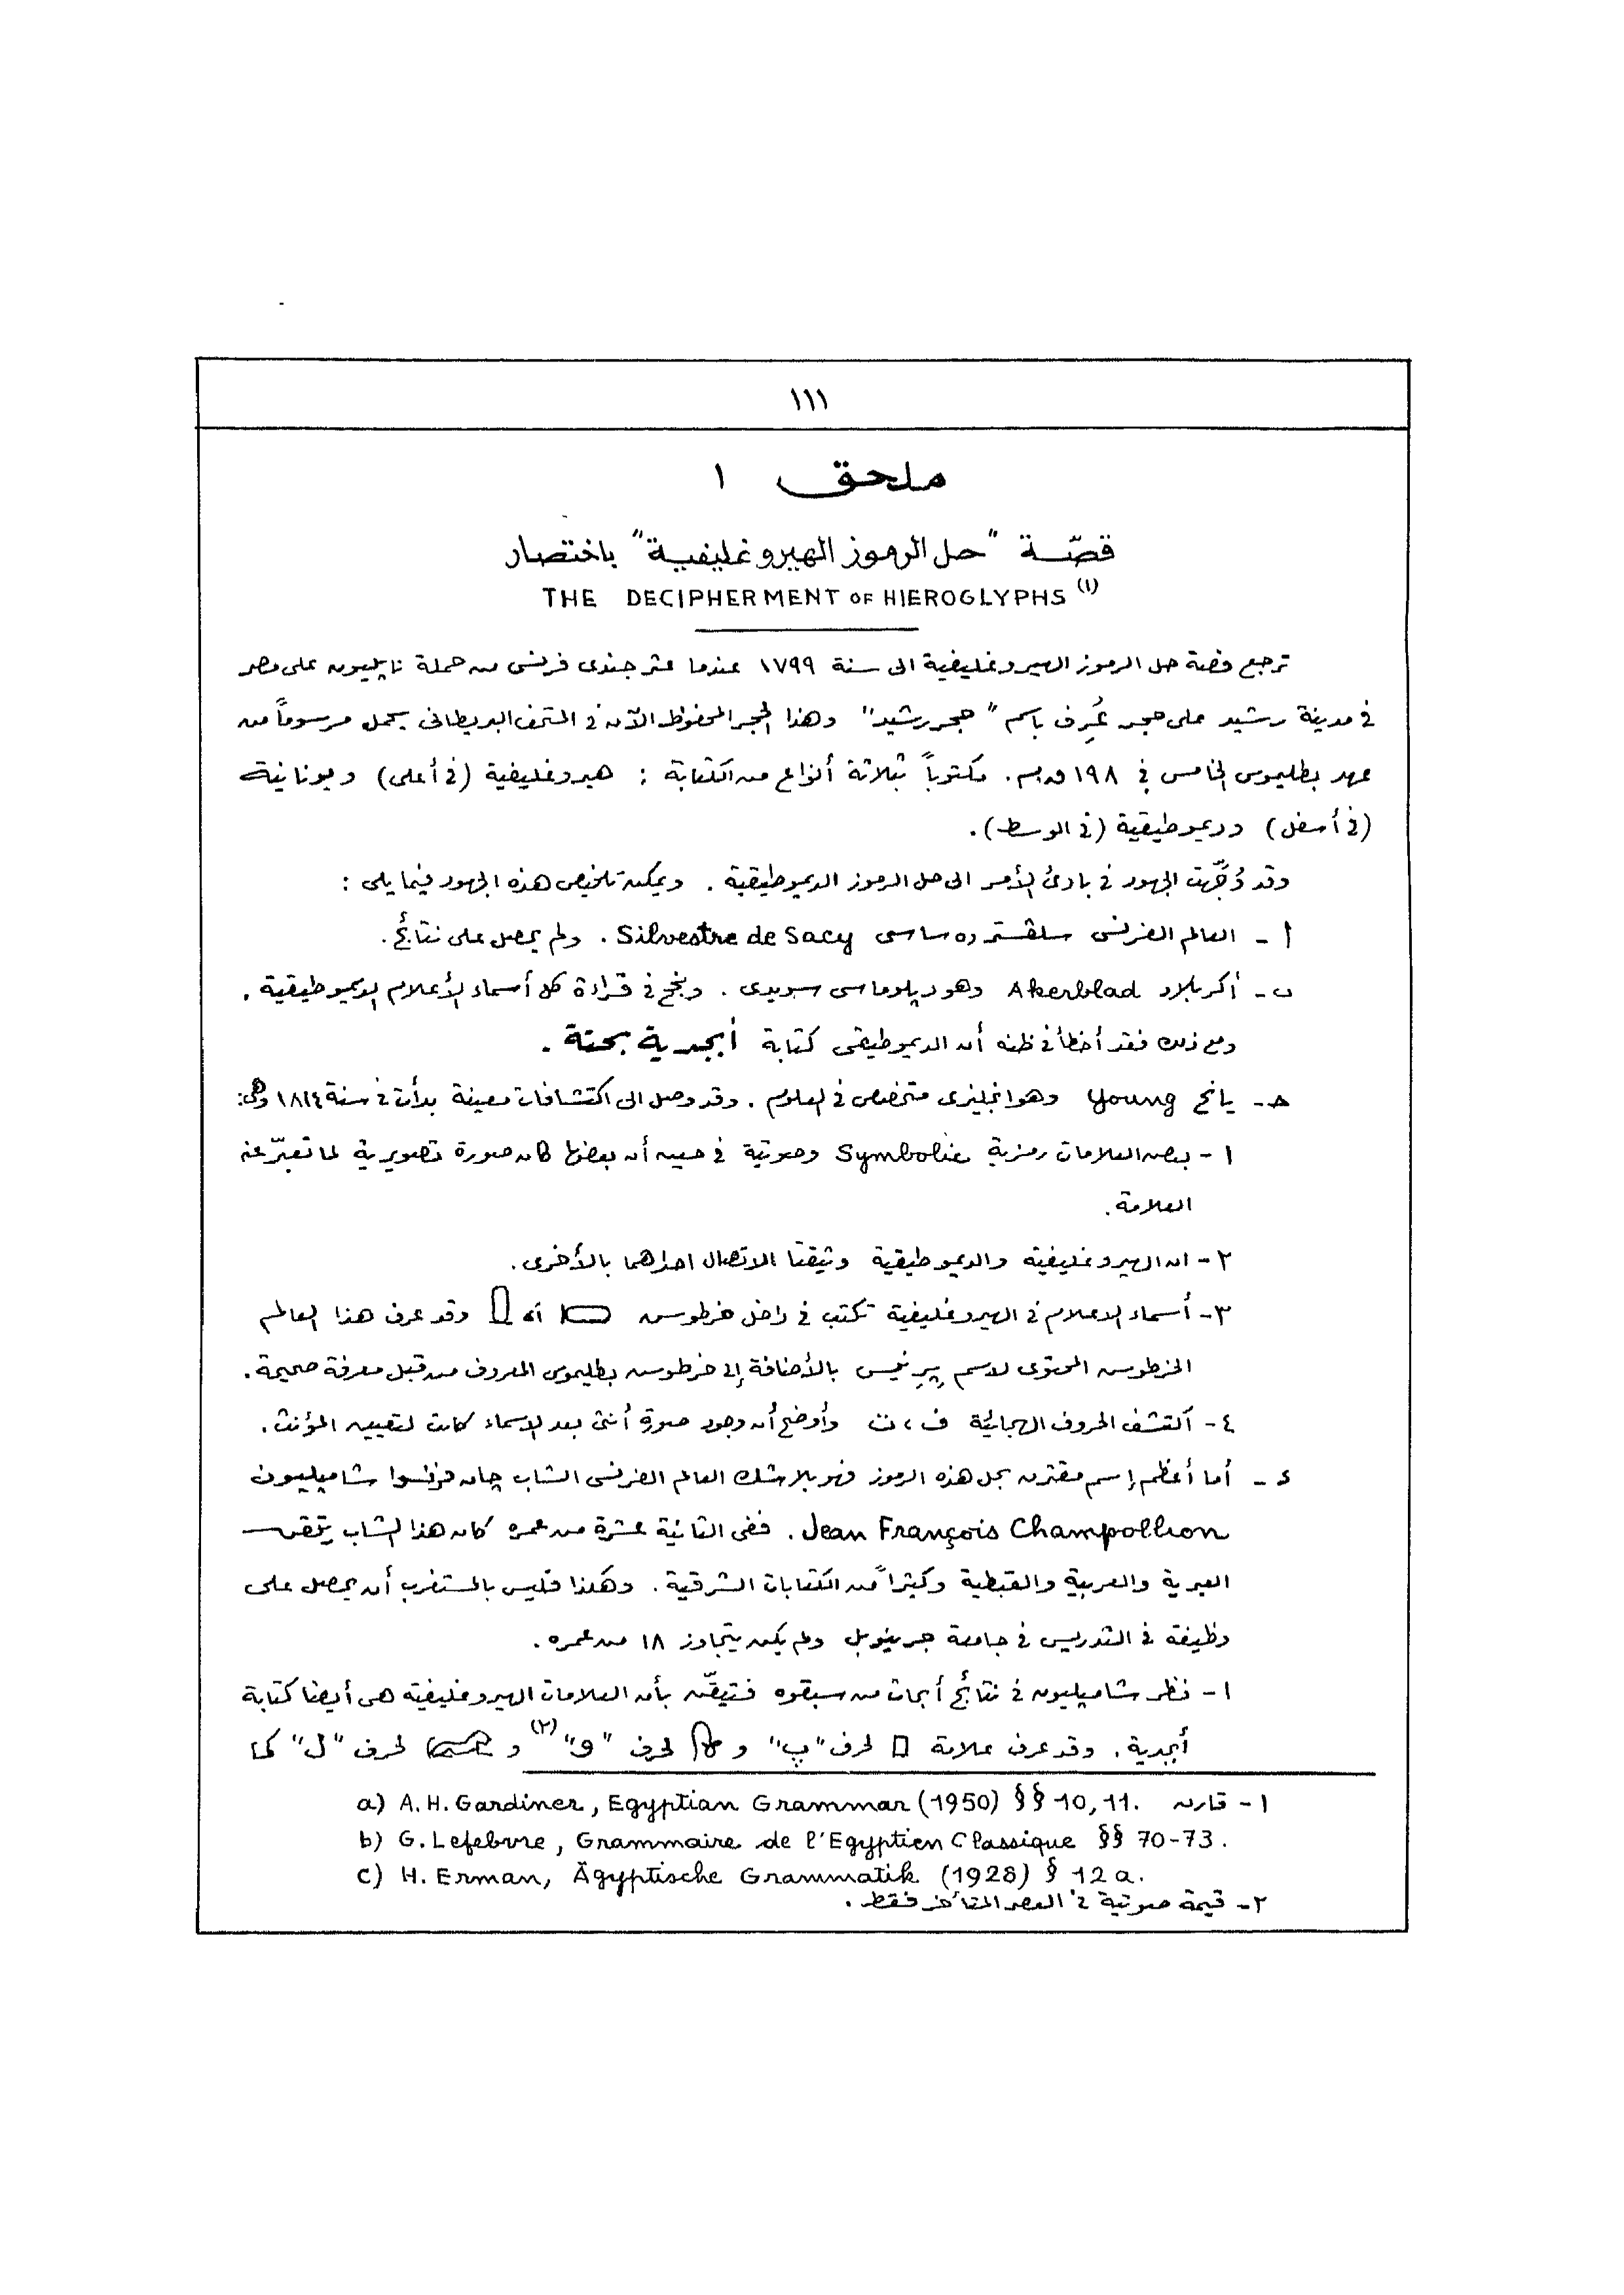 ١١١
ملحق ١
قصّة "حل الرموز الهيروغليفية" باختصار
THE DECIPHERMENT OF HIEROGLYPHS (١)
ترجع قصة حل الرموز الهيروغليفية الى سنة ١٧٩٩ عندما عثر جندى فرنسى من حملة ناپليون على مصر
فى مدينة رشيد على حجر عُرِف باسم "حجر رشيد" وهذا الحجر المحفوظ الآن فى المتحف البريطانى يحمل مرسوماً من
عهد بطليموس الخامس فى ١٩٨ ق.م. مكتوباً بثلاثة أنواع من الكتابة : هيروغليفية (فى أعلى) ويونانية
(فى أسفل) وديموطيقية (فى الوسط).
وقد وُجِّهت الجهود فى بادئ الأمر الى حل الرموز الديموطيقية . ويمكن تلخيص هذه الجهود فيما يلى :
أ - العالم الفرنسى سلڤستر ده ساسى Silvestre de Sacy . ولم يحصل على نتائج.
ب - أكربلاد Akerblad وهو ديلوماسى سويدى . ونجح فى قراءة كل أسماء الأعلام الديموطيقية .
ومع ذلك فقد أخطأ فى ظنه أن الديموطيقى كتابة أبجدية بحتة .
ح - يانج Young وهو انجليزى متخصص فى العلوم . وقد وصل الى اكتشافات معينة بدأت فى سنة ١٨١٤ وهى:
١ - بعض العلامات رمزية Symbolic وصوتية فى حين أن بعضها كان صورة تصويرية لما تعبّر عنه
العلامة.
٢ - ان الهيروغليفية والديموطيقية وثيقتا الاتصال احداهما بالأخرى.
٣ - أسماء الاعلام فى الهيروغليفية تكتب فى داخل خرطوش أو وقد عرف هذا العالم
الخرطوش المحتوى لاسم پِرِنيس بالأضافة إلى خرطوش بطليموس المعروف من قبل معرفة صحيحة.
٤ - اكتشف الحروف الهجائية ف ، ت وأوضح أن وجود صورة أنثى بعد الاسماء كانت لتعيين المؤنث .
د - أما أعظم إسم مقترن بحل هذه الرموز فهو بلا شك العالم الفرنسى الشاب چان فرنسوا شامپليون
Jean François Champollion . ففى الثانية عشرة من عمره كان هذا الشاب يتقن
العبرية والعربية والقبطية وكثيراً من الكتابات الشرقية . وهكذا فليس بالمستغرب أن يحصل على
وظيفة فى التدريس فى جامعة جرينوبل ولم يكن يتجاوز ١٨ من عمره .
١ - نظر شامپليون فى نتائج أبحاث من سبقوه فتيقّن بأن العلامات الهيروغليفية هى أيضا كتابة
أبجدية . وقد عرف علامة لحرف "پ" و لحرف "و" (٢) و لحرف "ل" كما
١ - قارن a) A. H. Gardiner, Egyptian Grammar (1950) §§ 10, 11.
b) G. Lefebvre, Grammaire de l'Egyptien Classique §§ 70-73.
c) H. Erman, Ägyptische Grammatik (1928) § 12 a.
٢ - قيمة صوتية فى العصر المتأخر فقط .